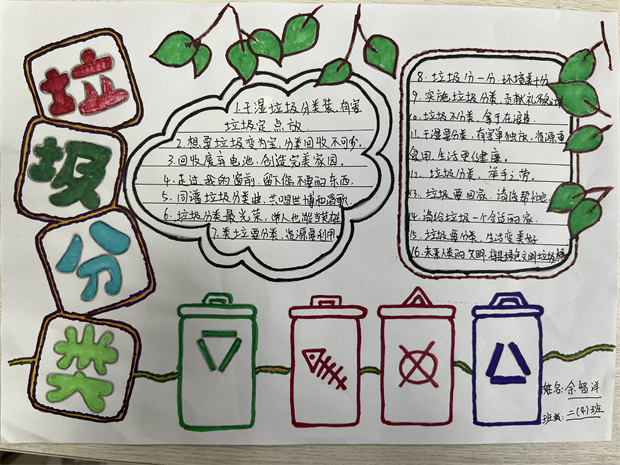 垃
圾
分
类
1.干湿垃圾分类装,有害
垃圾定点放
2.想要垃圾变为宝,分类回收不可少.
3.回收废弃电池,创造完美家园.
4.走过我的窗前,留下您不要的东西.
5.同谱垃圾分类曲,共唱世博和谐歌.
6.垃圾分类最光荣,单人也能当英雄
7.类垃要分类,资源要利用
8.垃圾分一分,环境美十分
9.实施垃圾分类,贡献
10.垃圾不分类,
11.干湿要分类,有害单独放,资源重
复用,生活更健康.
12.垃圾分类,举手之劳.
13.垃圾要回家,请您帮助她
14.请给垃圾一个合适的家.
15.垃圾要分类,生活变美好
16.未来人类的文明,
姓名:余智洋
班级:二(4)班